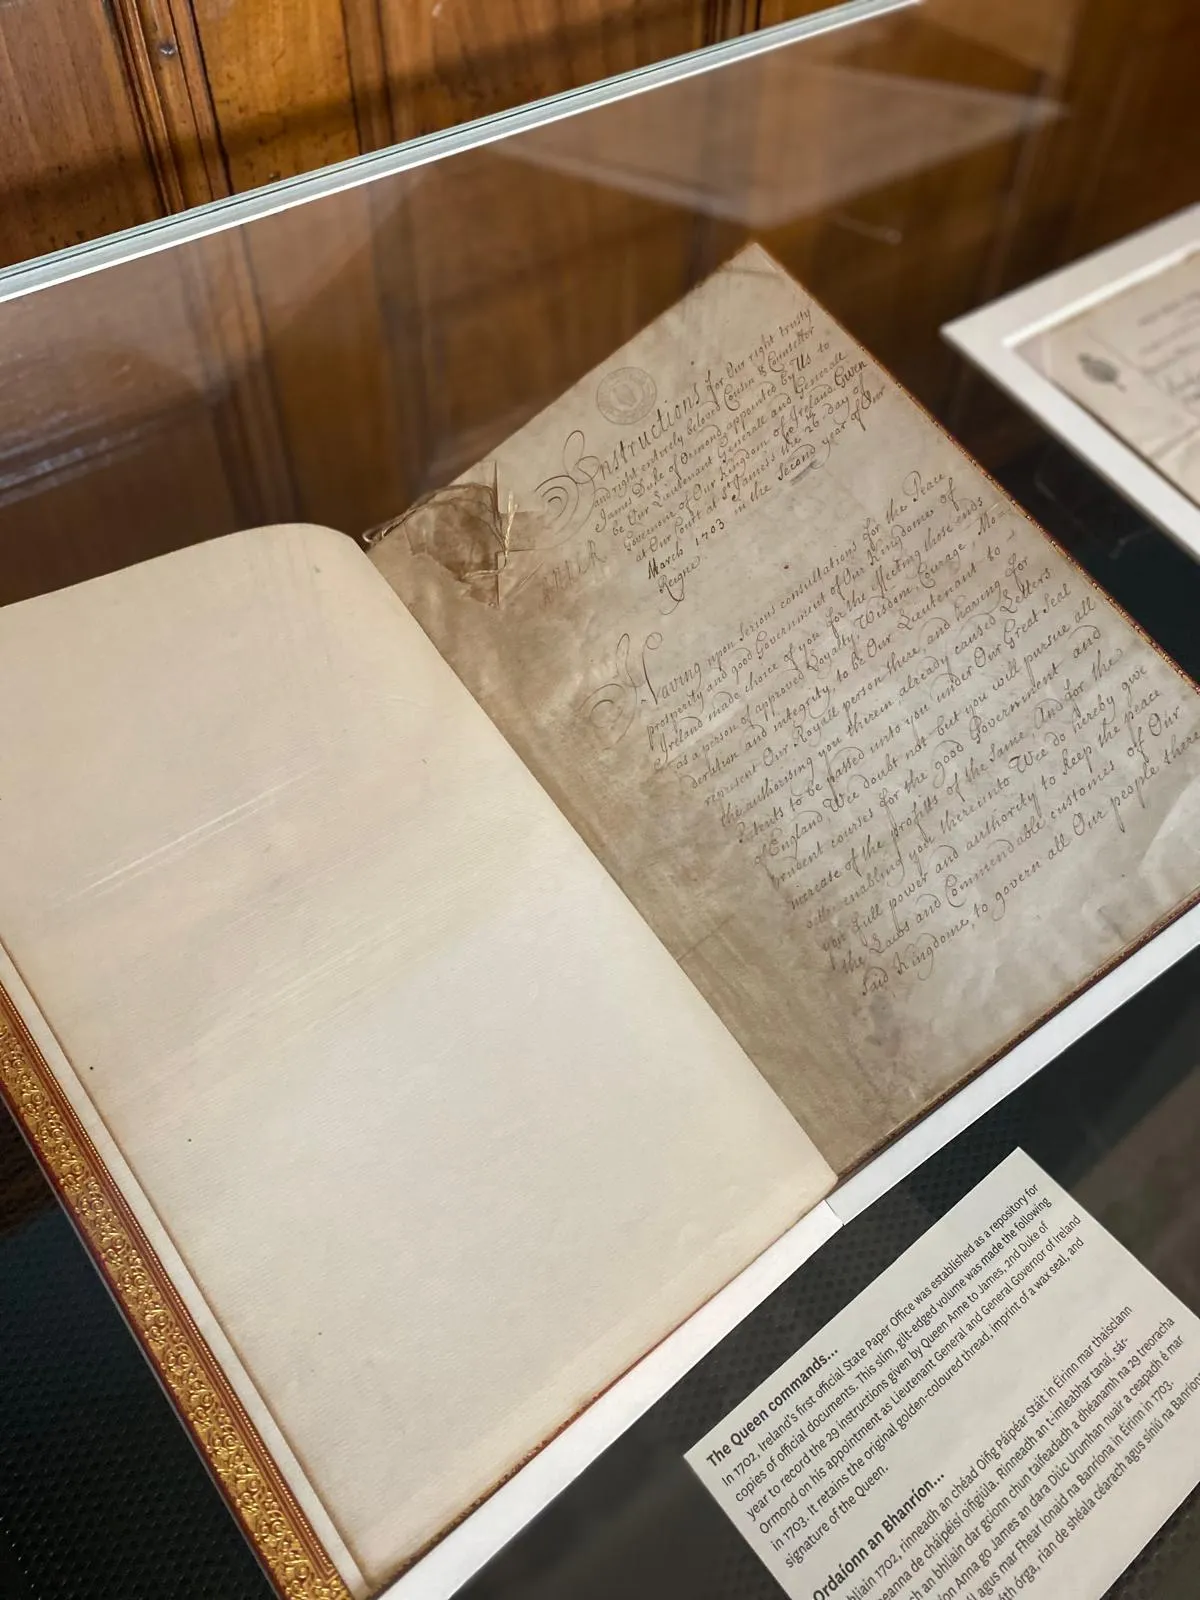 Instructions for Our right trusty
and right entirely beloved Cousin & Counsellor
James Duke of Ormond appointed by Us to
be Our Lieutenant Generall and Generall
Governor of Our Kingdom of Ireland. Given
at Our Court at St James's the 26 day of
March 1703 in the Second year of Our
Reigne
Having upon serious consultations for the Peace
prosperity and good Government of Our Kingdome of
Ireland made choice of you for the effecting those ends
as a person of approved Loyalty, Wisdome, Courage, Mo-
deration and integrity, to be Our Lieutenant to
represent Our Royall person there, and having for
the authorising you therein already caused Letters
Patents to be passed unto you under Our Great Seal
of England, Wee doubt not but you will pursue all
prudent courses for the good Government and
increase of the profitts of the Same, And for the
enabling you thereunto Wee do hereby give
you full power and authority to keep the peace
the Laws and Commendable customes of Our
said Kingdome, to govern all Our people there
The Queen commands...
In 1702, Ireland's first official State Paper Office was established as a repository for
copies of official documents. This slim, gilt-edged volume was made the following
year to record the 29 instructions given by Queen Anne to James, 2nd Duke of
Ormond on his appointment as Lieutenant General and General Governor of Ireland
in 1703. It retains the original golden-coloured thread, imprint of a wax seal, and
signature of the Queen.
Ordaíonn an Bhanríon...
bhliain 1702, rinneadh an chéad Oifig Páipéar Stáit in Éirinn mar thaisclann
de cháipéisí oifigiúla. Rinneadh an t-imleabhar tanaí, sár-
an bhliain dar gcionn chun taifeadadh a dhéanamh na 29 treoracha
Anna go James an dara Diúc Urumhan nuair a ceapadh é mar
agus mar Fhear Ionaid na Banríona in Éirinn in 1703.
órga, rian de shéala céarach agus síniú na Banríona